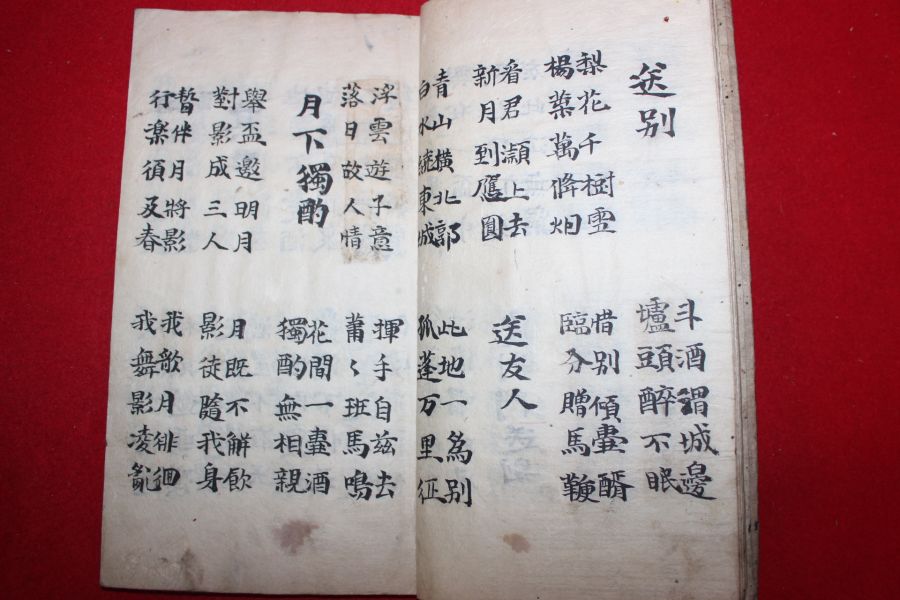 送别
斗酒渭城邊
壚頭醉不眠
梨花千樹雪
楊葉萬條烟
惜别傾壺醑
臨分贈馬鞭
看君灝上去
新月到應圓
送友人
青山橫北郭
白水繞東城
此地一爲别
孤蓬万里征
浮雲遊子意
落日故人情
揮手自茲去
蕭〻班馬鳴
月下獨酌
花間一壺酒
獨酌無相親
舉盃邀明月
對影成三人
月既不解飮
影徒隨我身
暫伴月將影
行楽須及春
我歌月徘徊
我舞影凌亂